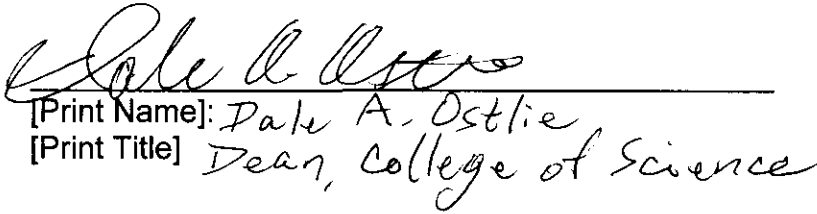 Dale A. Ostlie
[Print Name]: Dale A. Ostlie
[Print Title] Dean, College of Science